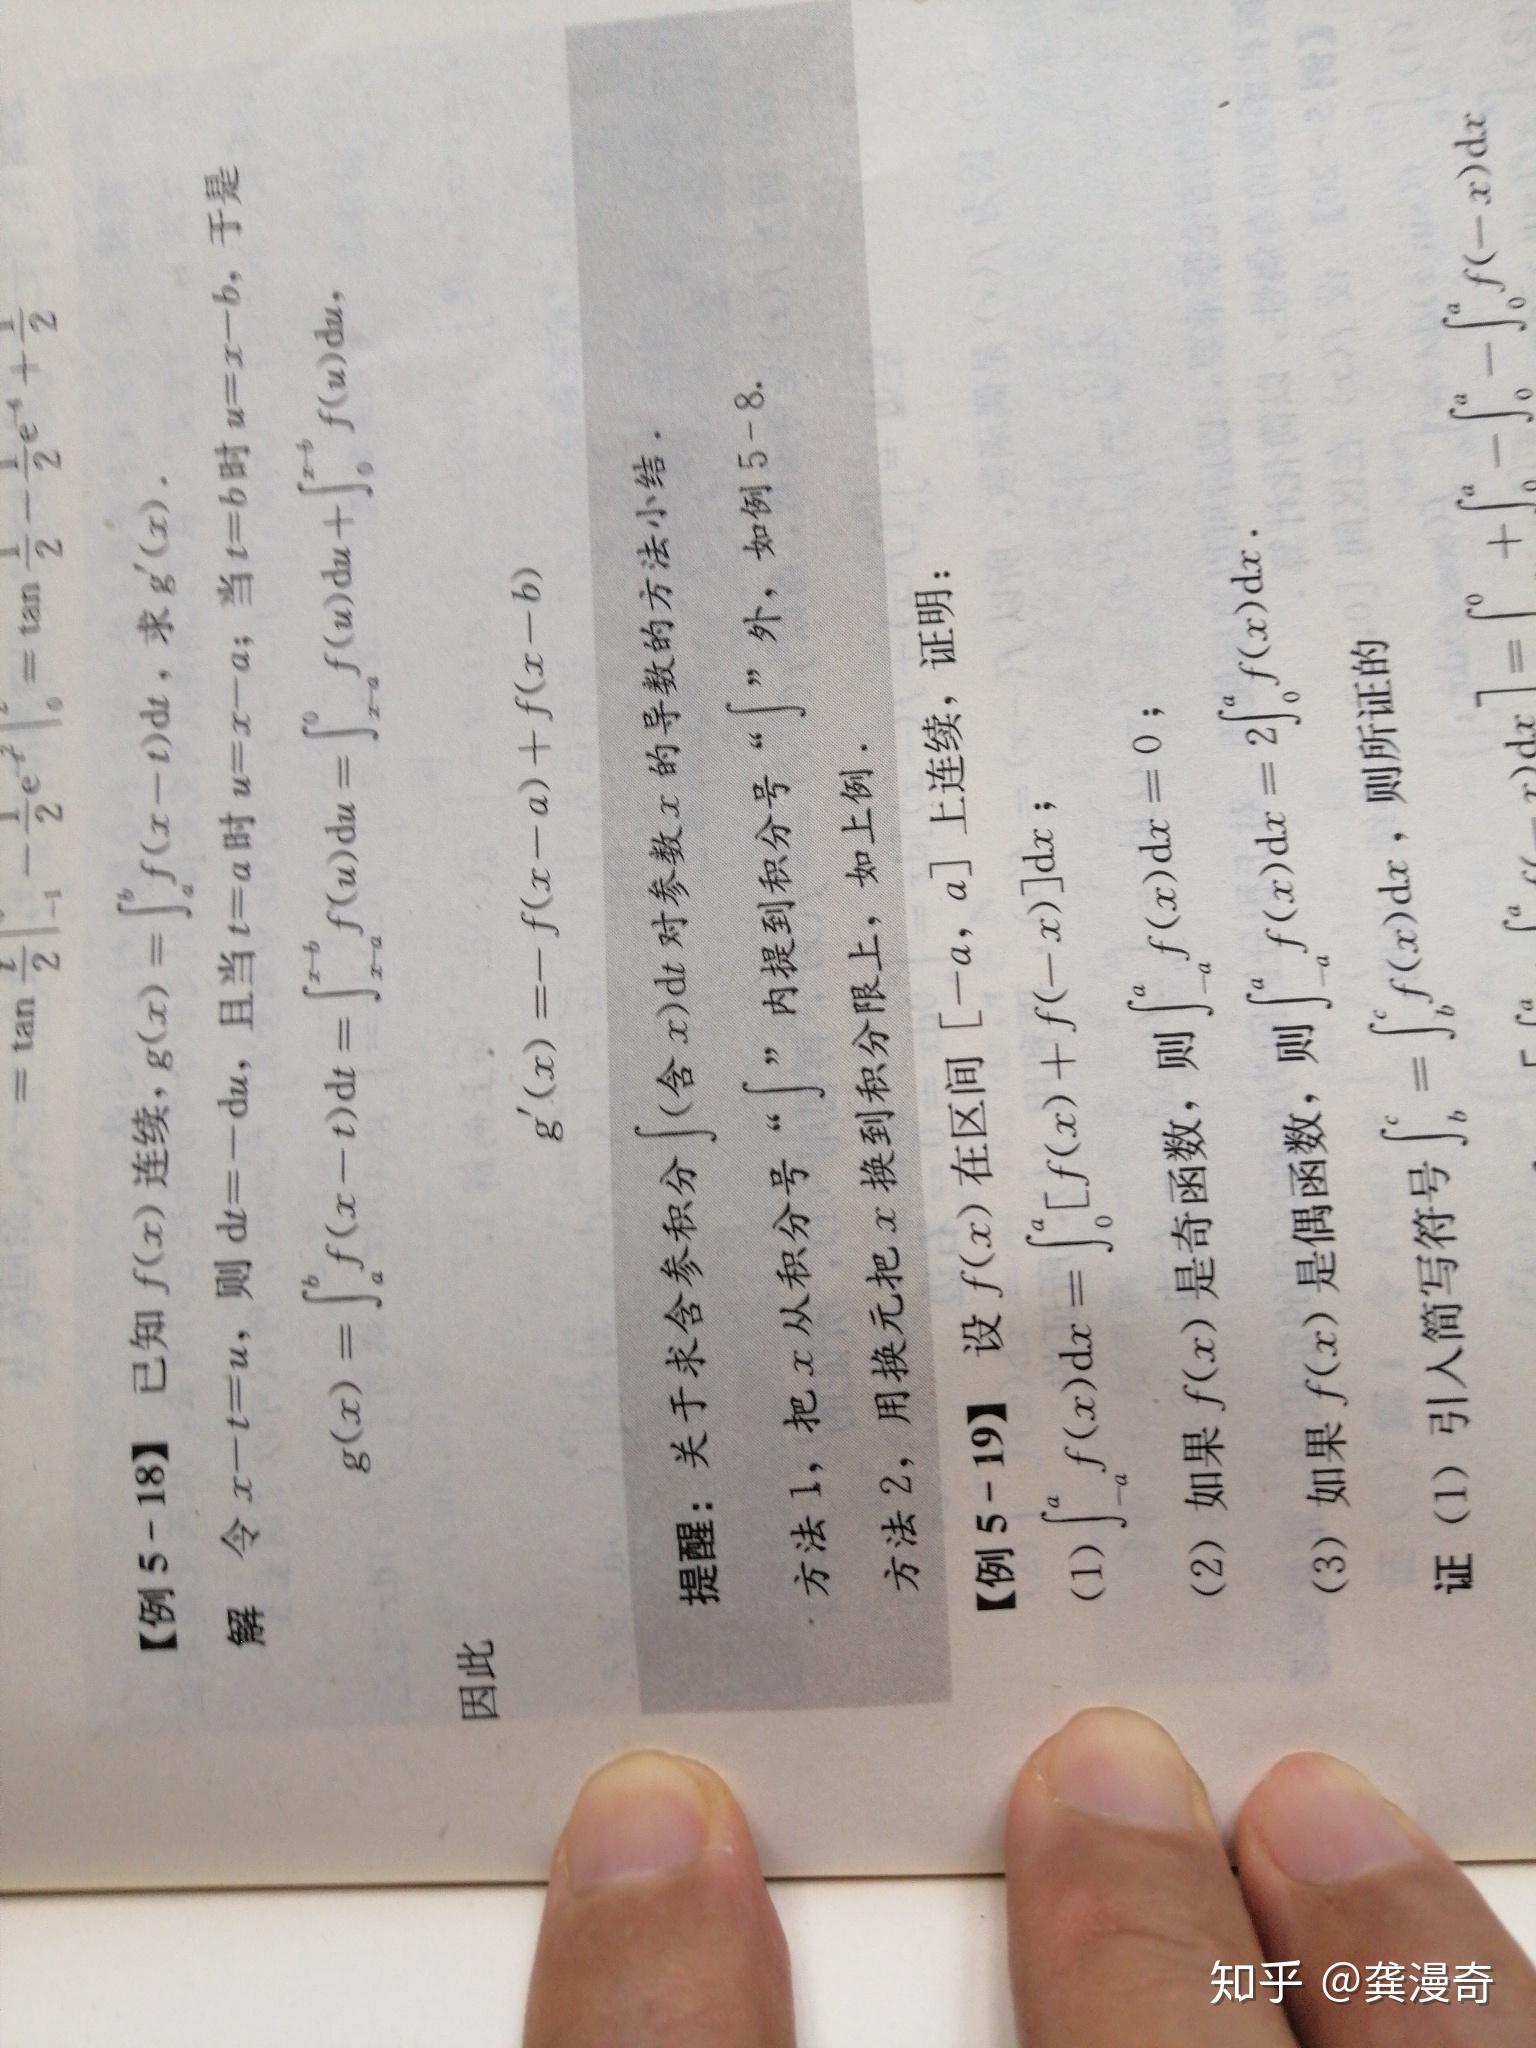 = tan t/2 |₋₁⁰ − 1/2 e^(−t²) |₀² = tan 1/2 − 1/2 e⁻⁴ + 1/2
【例 5-18】 已知 f(x) 连续, g(x) = ∫ₐᵇ f(x−t)dt, 求 g′(x).
解 令 x−t=u, 则 dt=−du, 且当 t=a 时 u=x−a; 当 t=b 时 u=x−b, 于是
g(x) = ∫ₐᵇ f(x−t)dt = ∫_{x−a}^{x−b} f(u)du = ∫_{x−a}^{0} f(u)du + ∫_{0}^{x−b} f(u)du,
因此
g′(x) = −f(x−a) + f(x−b)
提醒: 关于求含参积分 ∫(含 x)dt 对参数 x 的导数的方法小结.
方法 1, 把 x 从积分号 “∫” 内提到积分号 “∫” 外, 如例 5-8.
方法 2, 用换元把 x 换到积分限上, 如上例.
【例 5-19】 设 f(x) 在区间 [−a, a] 上连续, 证明:
(1) ∫_{−a}^{a} f(x)dx = ∫_{0}^{a} [f(x) + f(−x)]dx;
(2) 如果 f(x) 是奇函数, 则 ∫_{−a}^{a} f(x)dx = 0;
(3) 如果 f(x) 是偶函数, 则 ∫_{−a}^{a} f(x)dx = 2∫_{0}^{a} f(x)dx.
证 (1) 引入简写符号 ∫_{b}^{c} = ∫_{b}^{c} f(x)dx, 则所证的
x)dx] = ∫⁰ + ∫₀ᵃ − ∫₀ᵃ − ∫₀ᵃ f(−x)dx
知乎 @龚漫奇